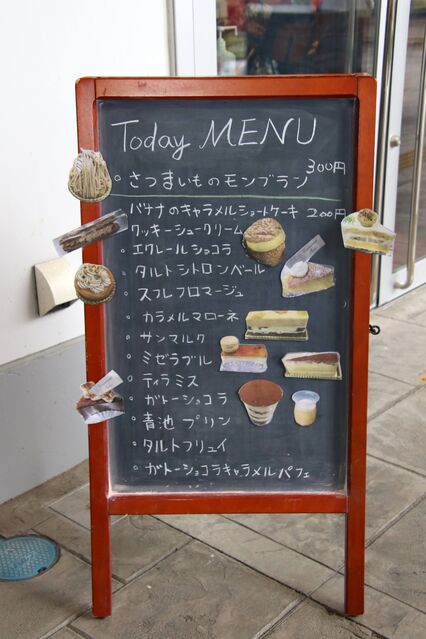 Today MENU
300円
。さつまいものモンブラン
。バナナのキャラメルショートケーキ 200円
。クッキーシュークリーム
。エクレールショコラ
。タルトシトロンベール
。スフレフロマージュ
。カラメルマローネ
。サンマルク
。ミゼラブル
。ティラミス
。ガトーショコラ
。青池プリン
。タルトフリュイ
。ガトーショコラキャラメルパフェ